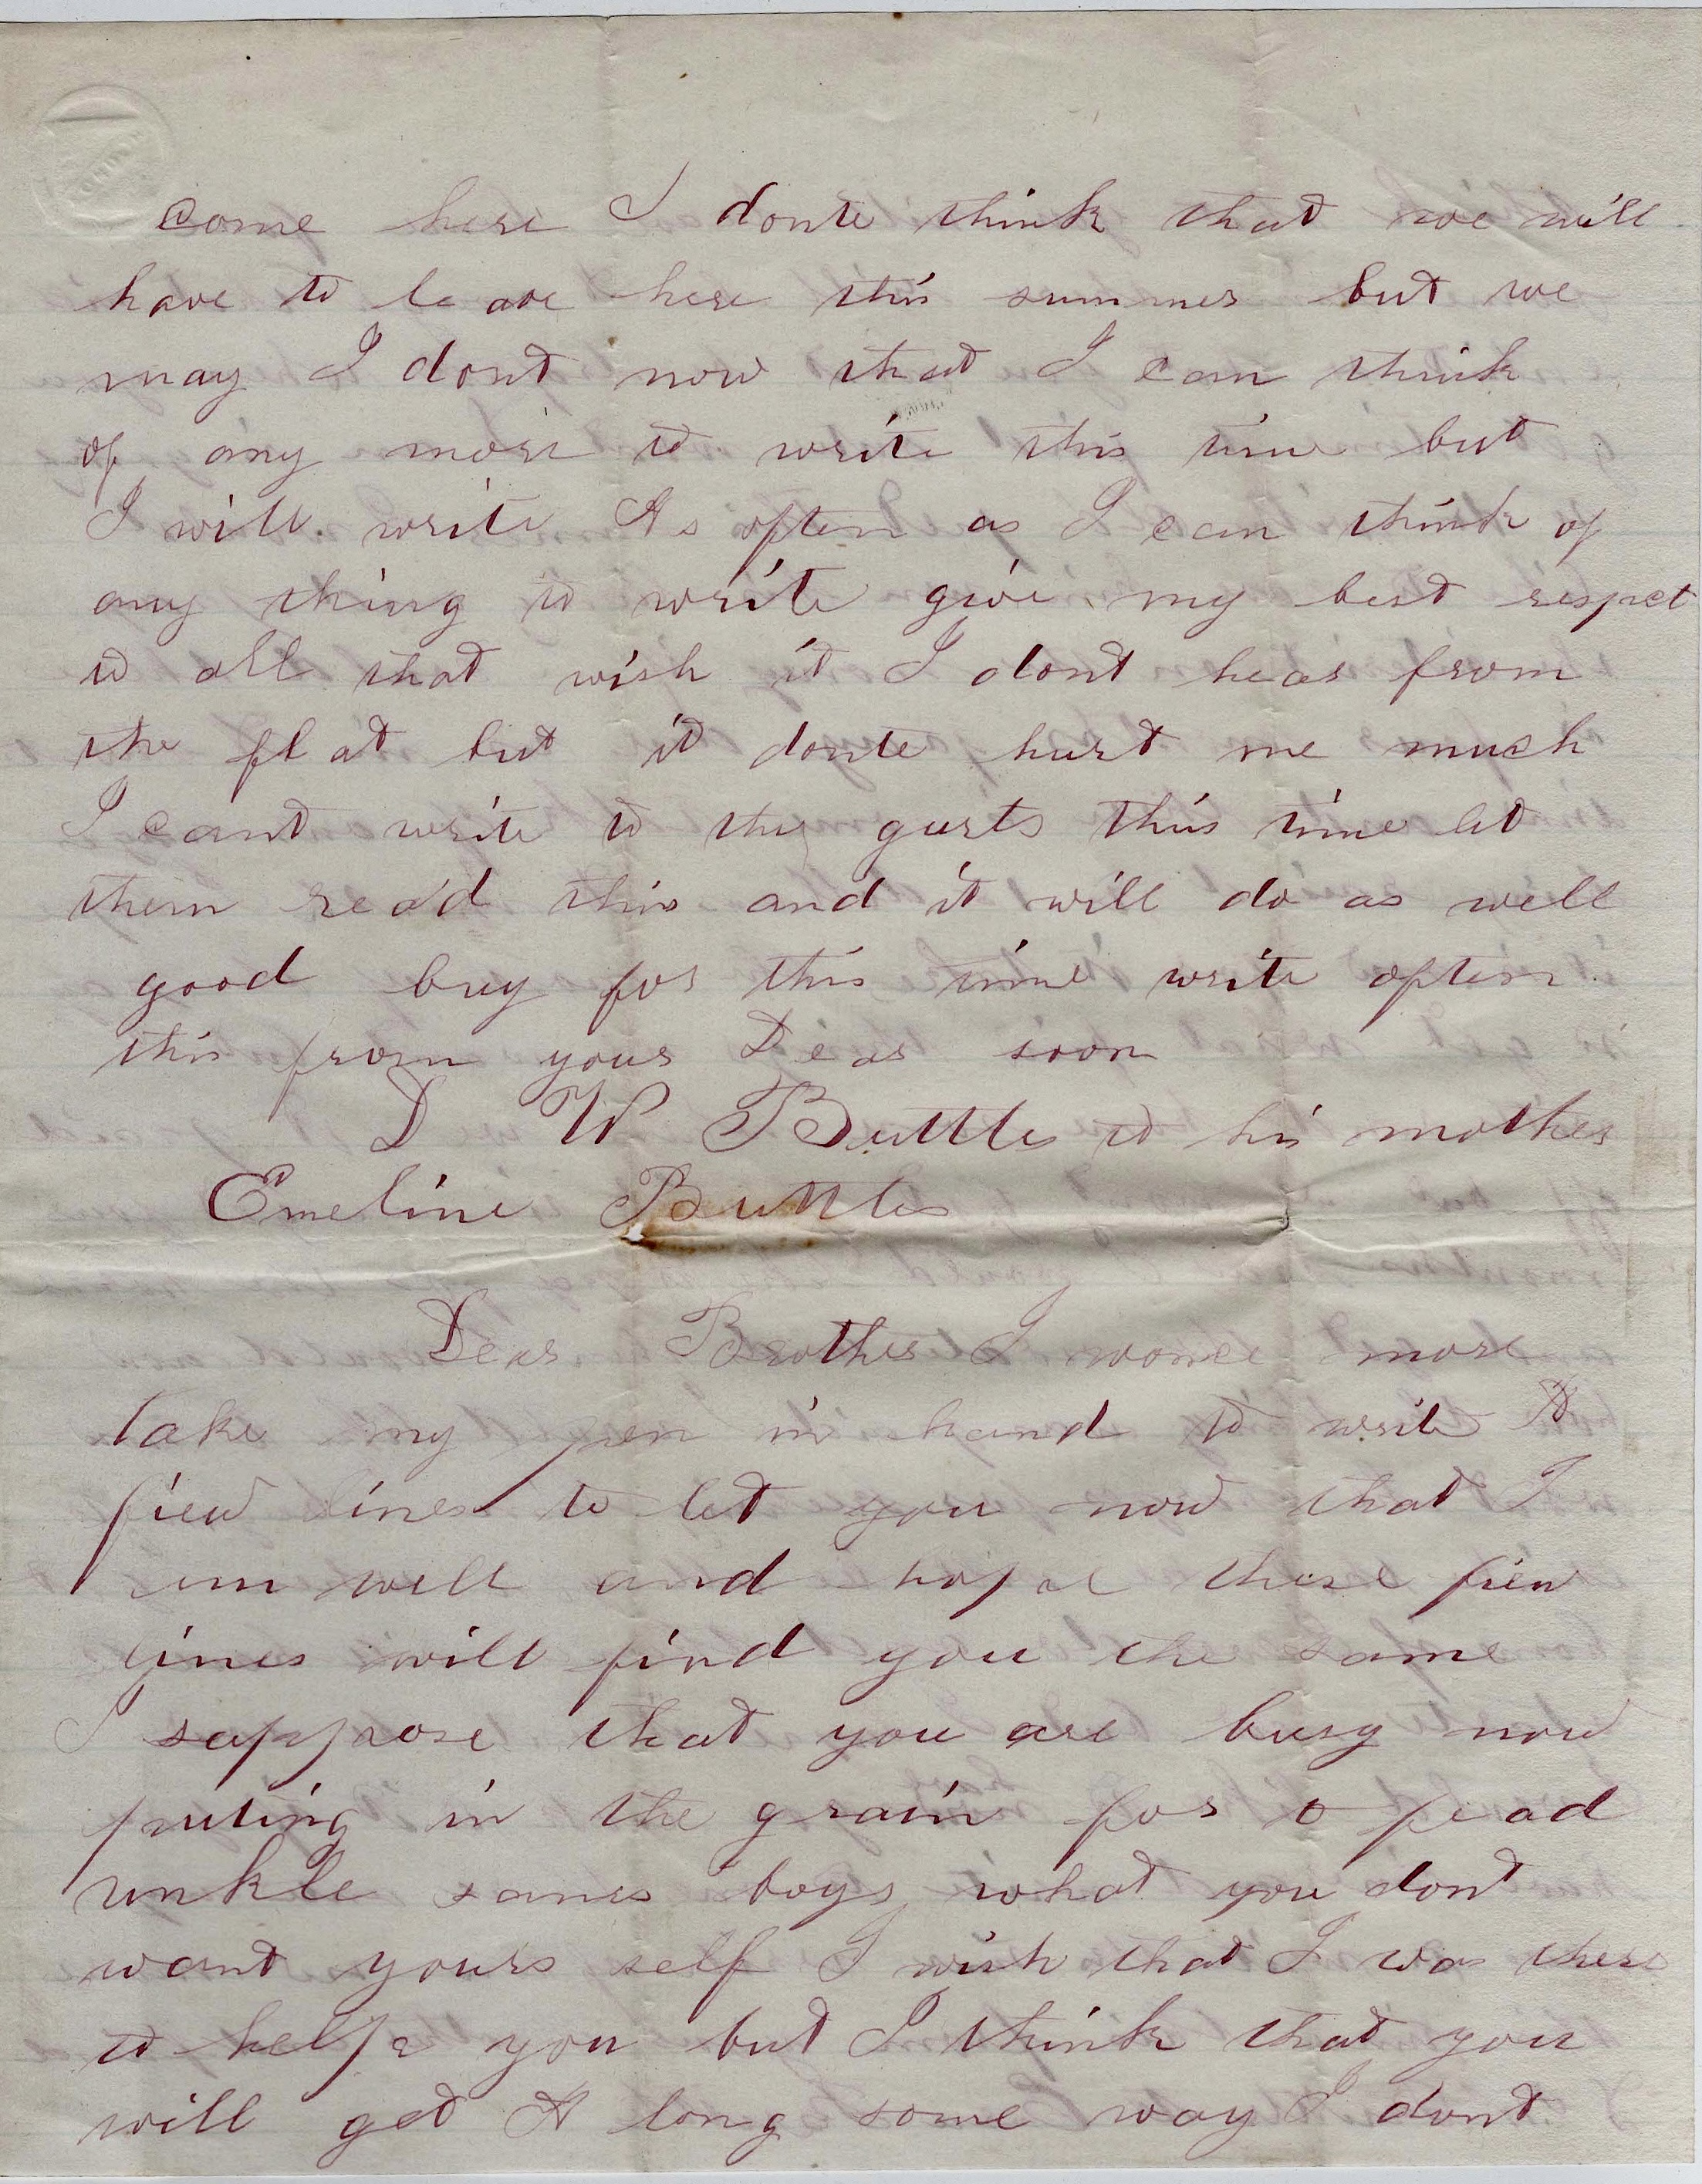 come here I donte think that we will
have to le ave here this summer but we
may I dont now that I can think
of any more to write this time but
I will write As often as I can think of
any thing to write give my best respect
to all that wish it I dont hear from
the flat but it donte hurt me much
I cant write to the gurls this time let
them read this and it will do as well
good buy for this time write often
this from your Dear soon
D W Buttles to his mother
Emeline Buttles
Dear Brother I wonce more
take my pen in hand to write A
fiew lines to let you now that I
am well and hope these fiew
lines will find you the same
I suppose that you are busy now
puting in the grain for to fead
unkle sames boys what you dont
want yours self I wish that I was there
to helpe you but I think that you
will get A long some way I dont